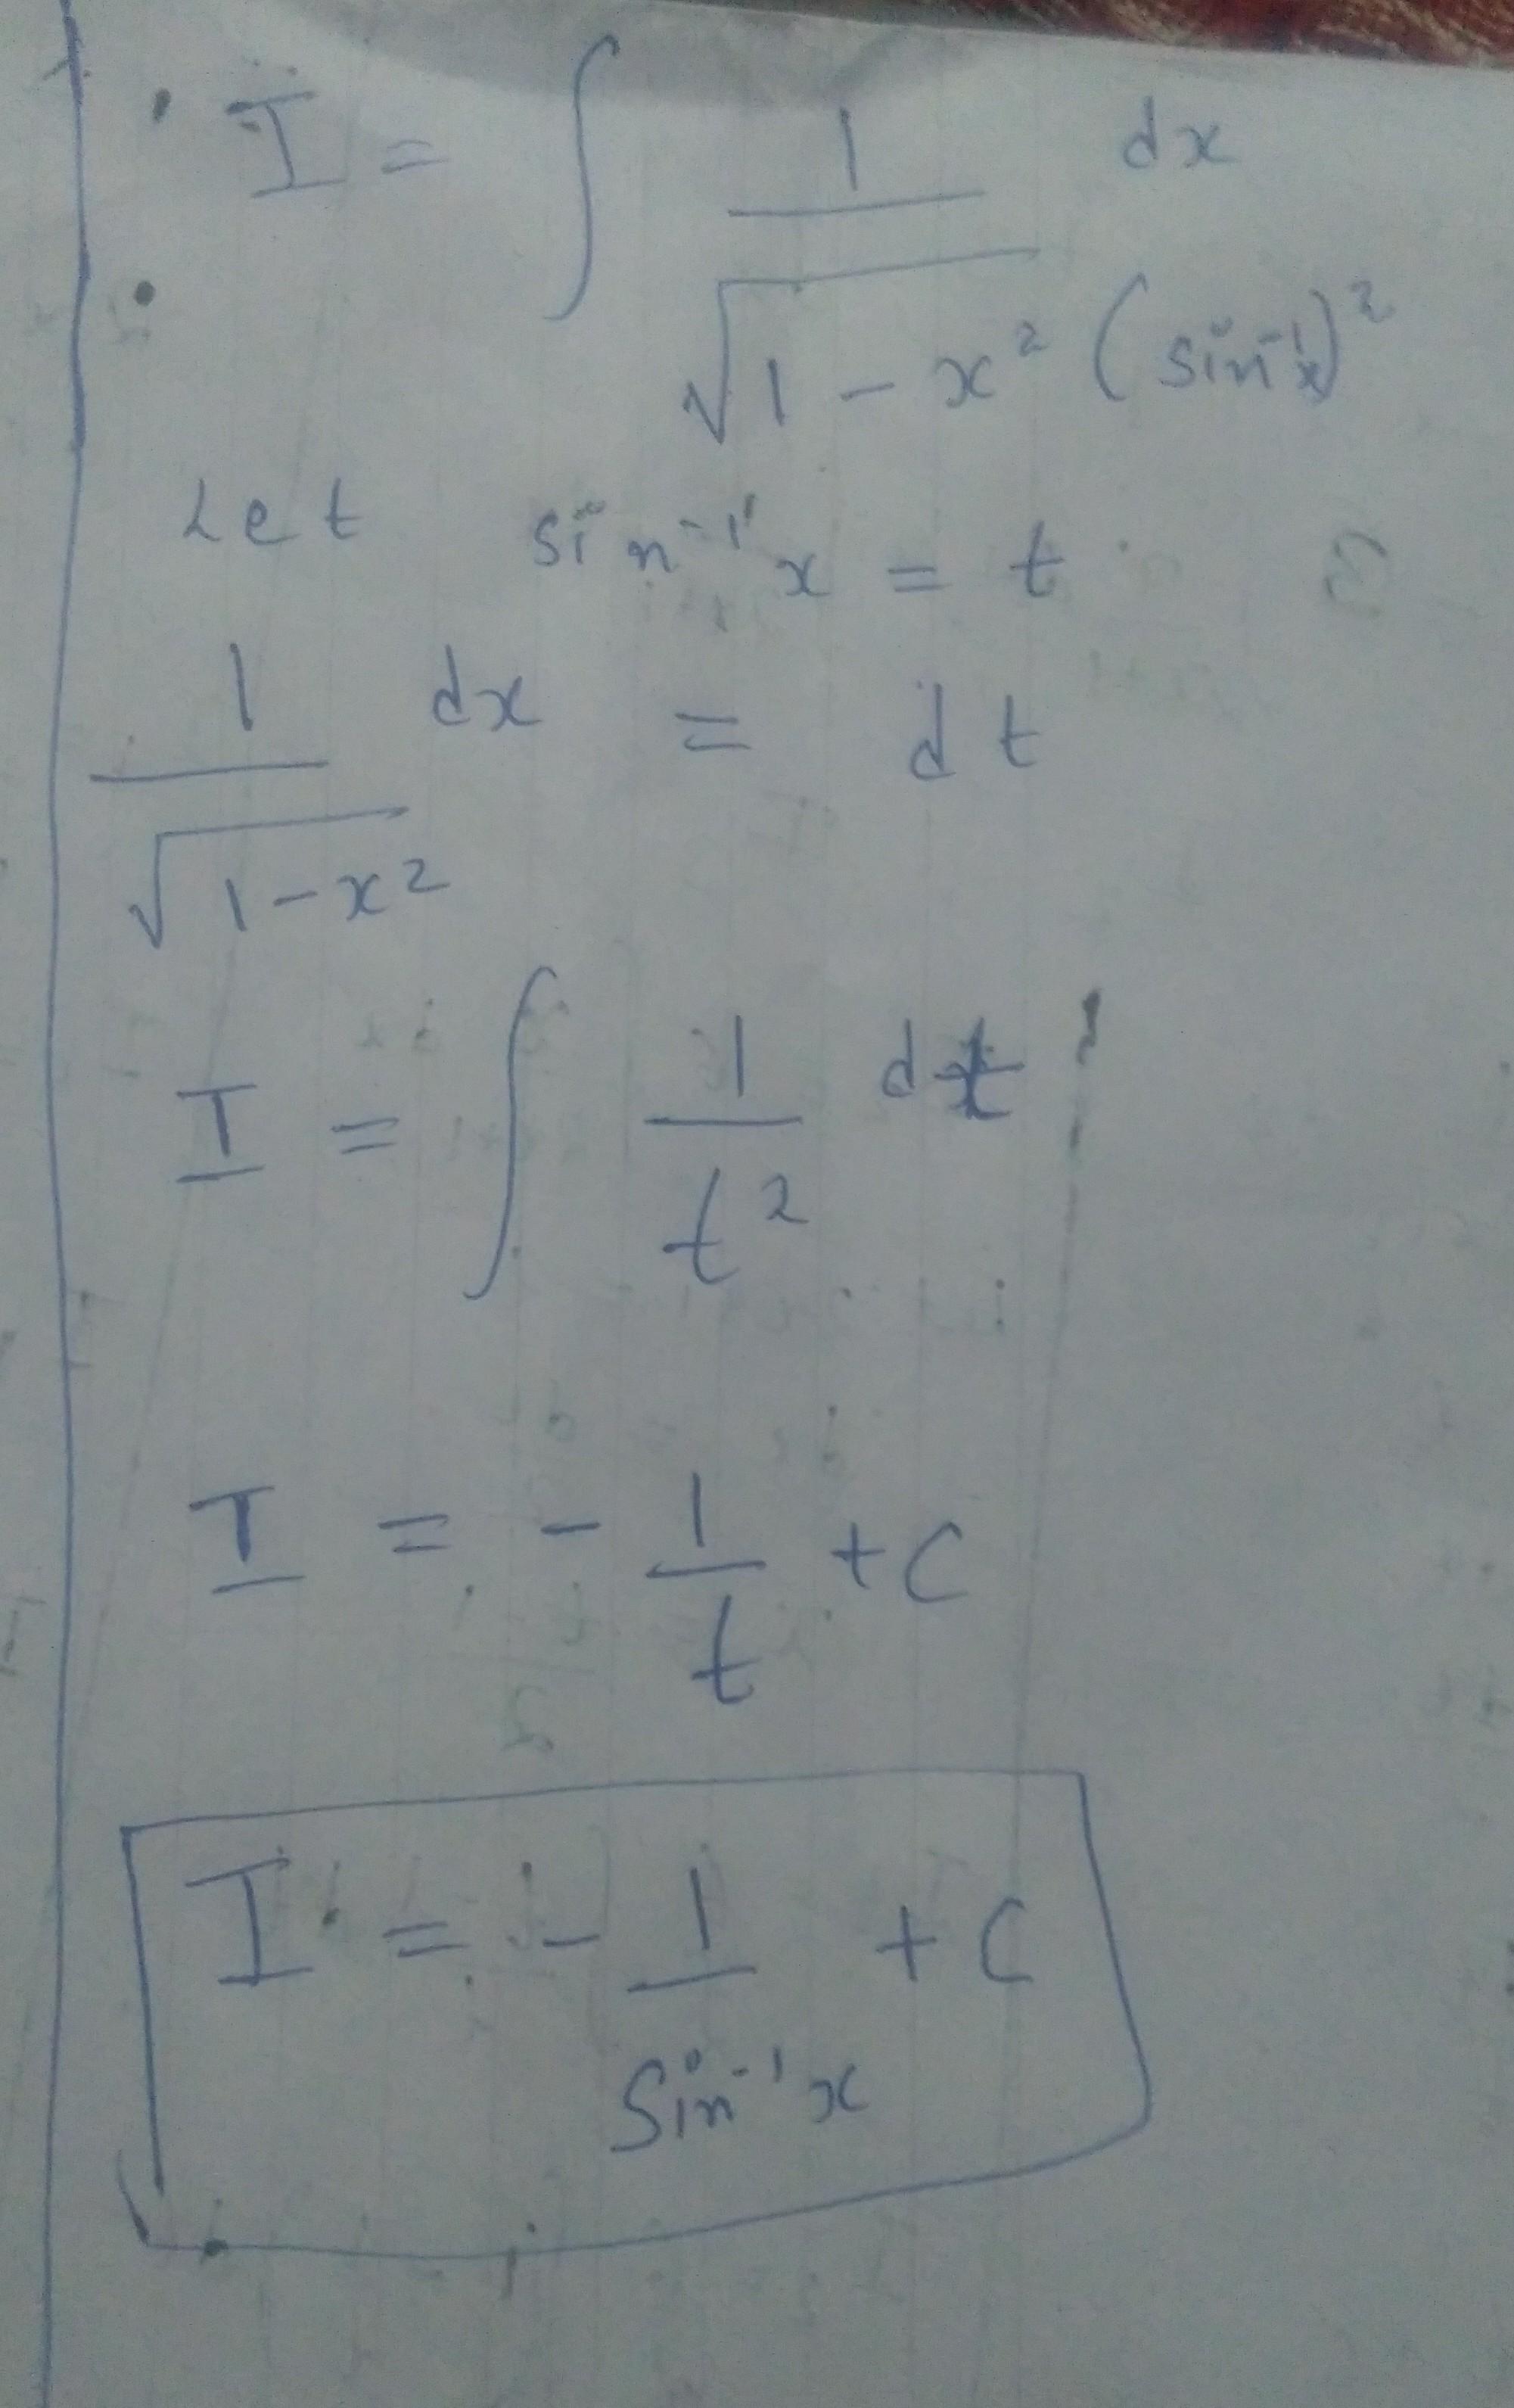 I = ∫ 1/√(1 - x²) (sin⁻¹x)² dx
Let sin⁻¹x = t
1/√(1-x²) dx = dt
I = ∫ 1/t² dt
I = - 1/t + c
I = - 1/Sin⁻¹x + c